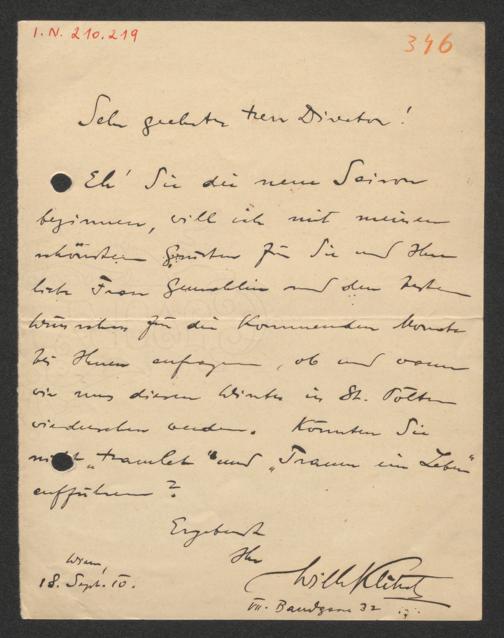 I.N. 210.219
346
Sehr geehrter Herr Director!
Eh' Sie die neue Saison
beginnen, will ich mit meinen
schönsten Grüßen für Sie und Ihre
liebe Frau Gemahlin und den besten
Wünschen für die kommenden Monate
bei Ihnen anfragen, ob und wann
wir uns diesen Winter in St. Pölten
wiedersehen werden. Könnten Sie
nicht „Hamlet" und „Traum ein Leben"
aufführen?
Ergebenst
Ihr
Wien,
18. Sept. 10.
Willi Klitsch
VII. Bandgasse 32